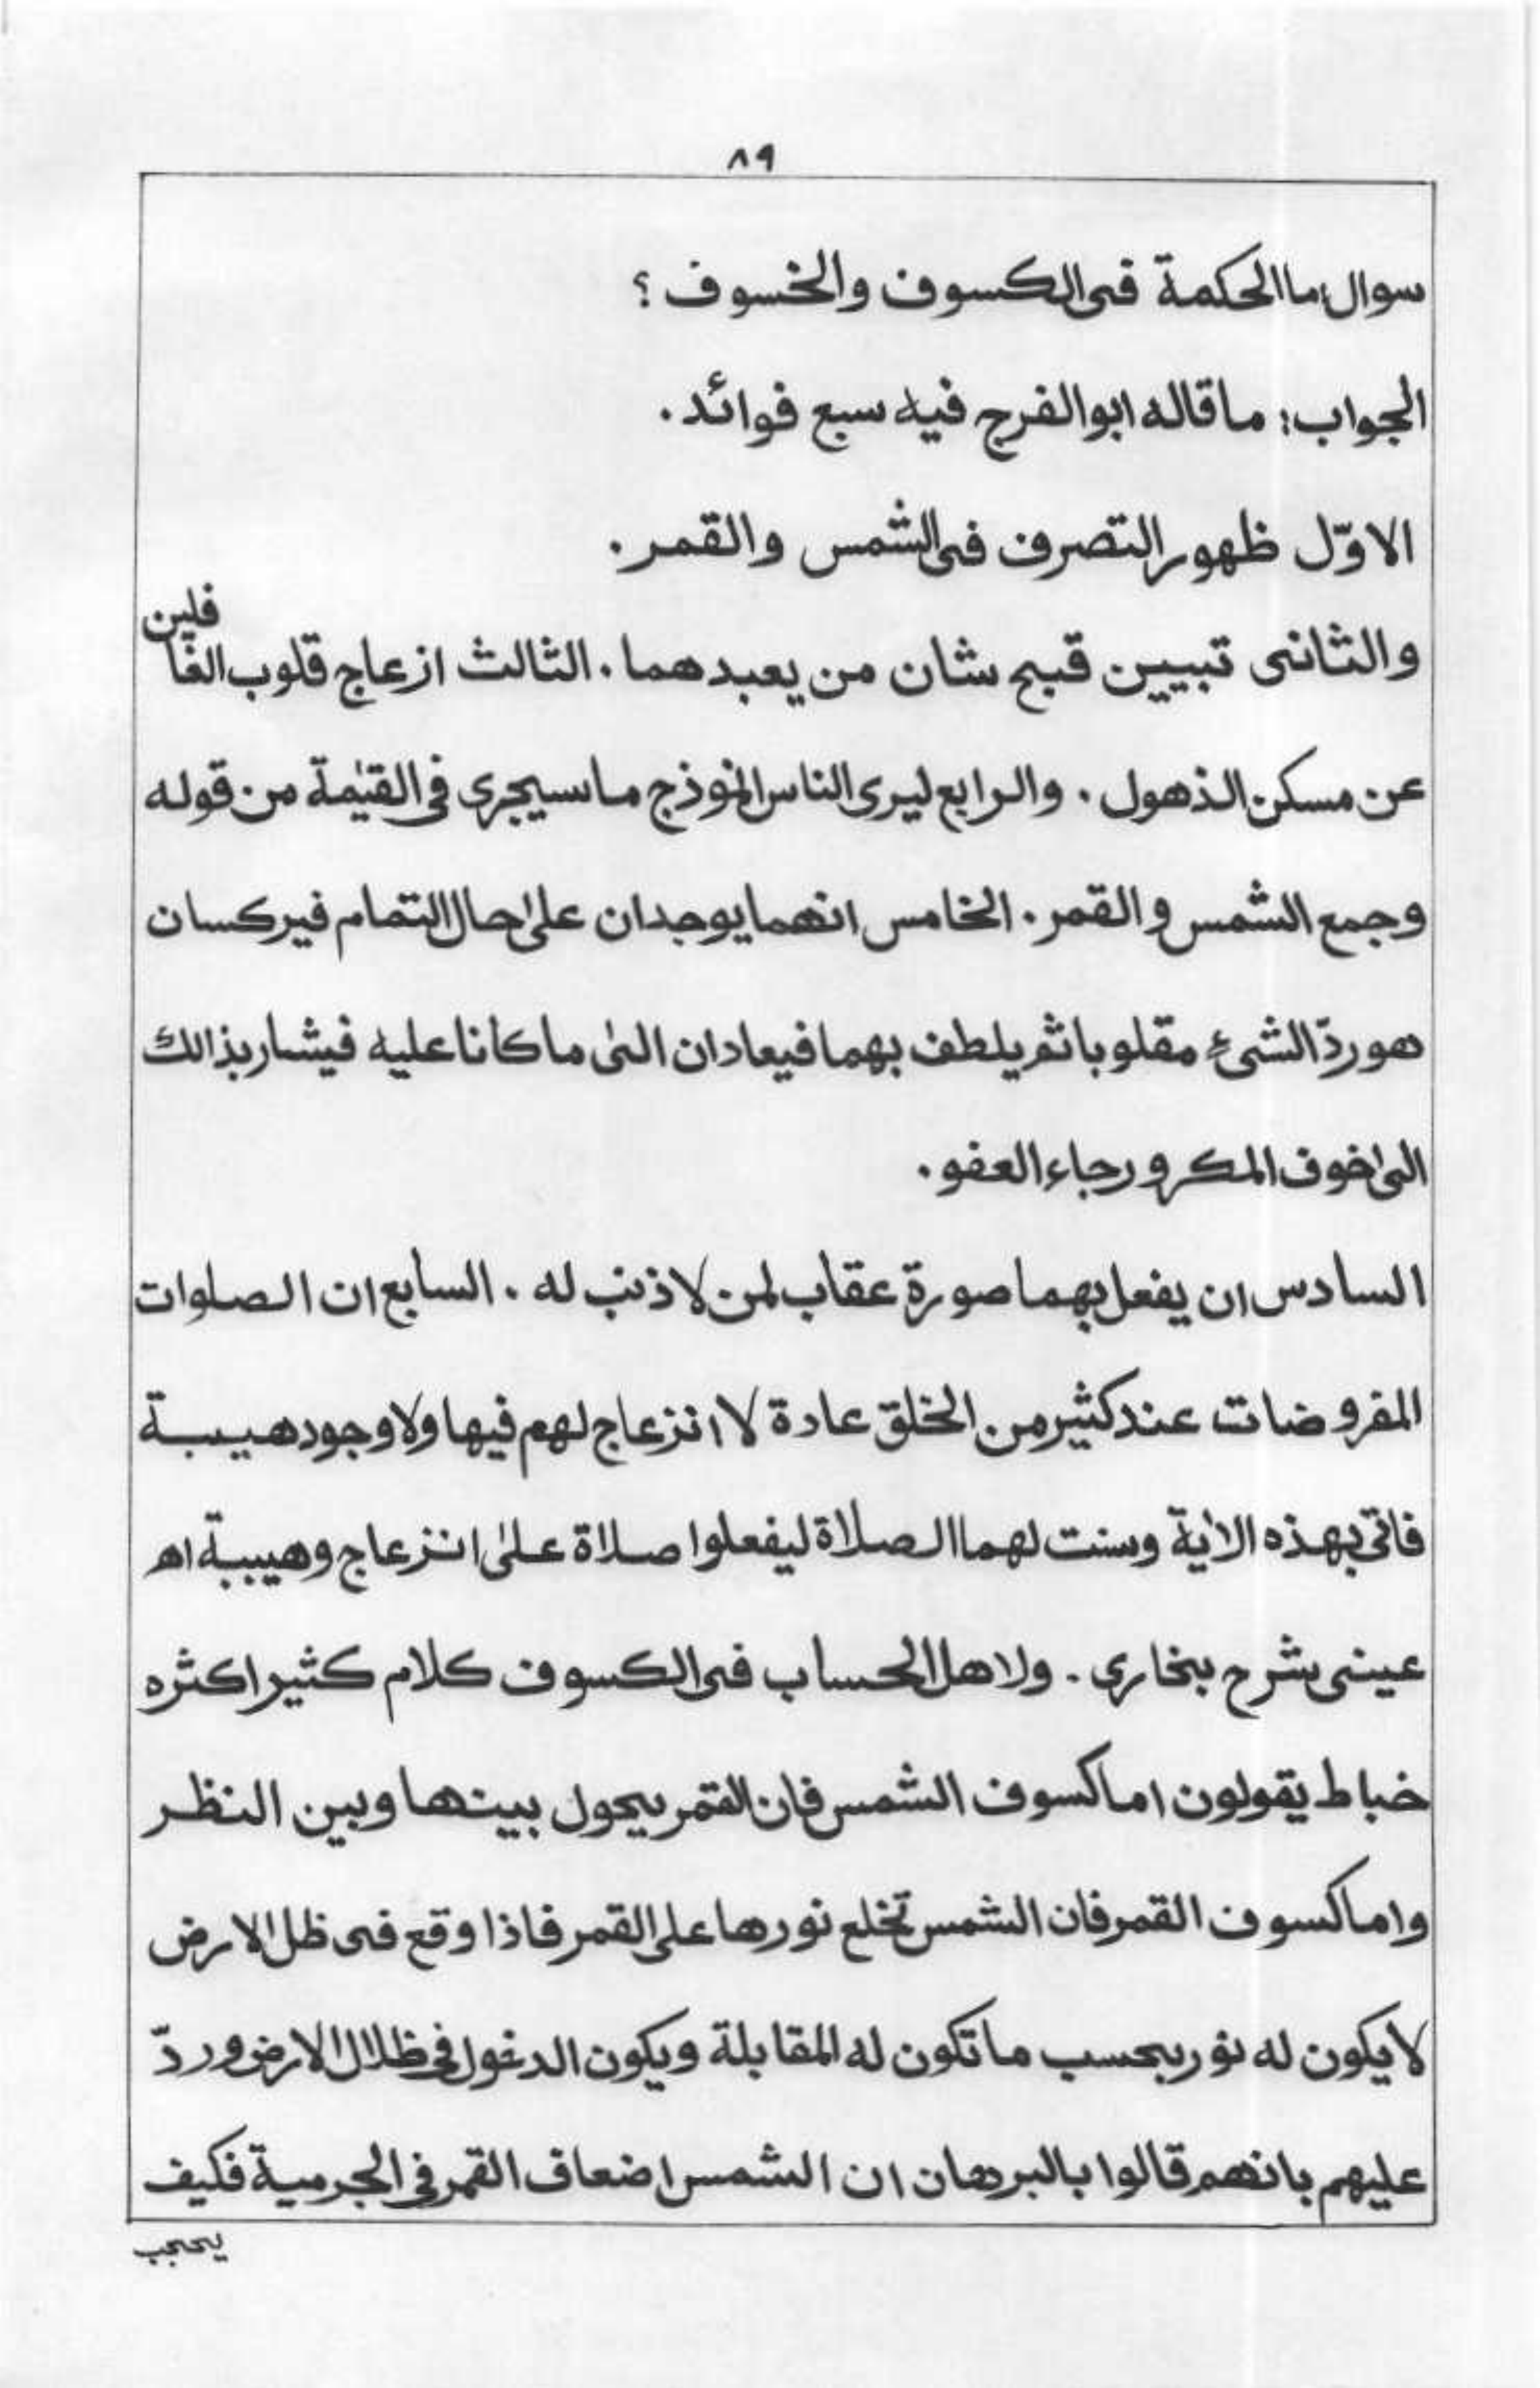 ٨٩
سوال: ما الحكمة فى الكسوف والخسوف ؟
الجواب: ما قاله ابو الفرج فيه سبع فوائد .
الاوّل ظهور التصرف فى الشمس والقمر .
والثانى تبيين قبح شان من يعبدهما . الثالث ازعاج قلوب الغافلين
عن مسكن الذهول . والرابع ليرى الناس انموذج ما سيجرى فى القيٰمة من قوله
وجمع الشمس والقمر . الخامس انهما يوجدان علىٰ حال التمام فيركسان
هو ردّ الشىء مقلوبا ثم يلطف بهما فيعادان الىٰ ما كانا عليه فيشار بذالك
الىٰ خوف المكر ورجاء العفو .
السادس ان يفعل بهما صورة عقاب لمن لا ذنب له . السابع ان الصلوات
المفروضات عند كثير من الخلق عادة لا انزعاج لهم فيها ولا وجود هيبة
فاتى بهذه الاٰية وسنت لهما الصلاة ليفعلوا صلاة علىٰ انزعاج وهيبة اھ
عينى شرح بخارى . ولاهل الحساب فى الكسوف كلام كثير اكثره
خباط يقولون اما كسوف الشمس فان القمر يحول بينها وبين النظر
واما كسوف القمر فان الشمس تخلع نورها على القمر فاذا وقع فى ظل الارض
لا يكون له نور بحسب ما تكون له المقابلة ويكون الدخول فى ظلال الارض وردّ
عليهم بانهم قالوا بالبرهان ان الشمس اضعاف القمر فى الجرمية فكيف
يحجب